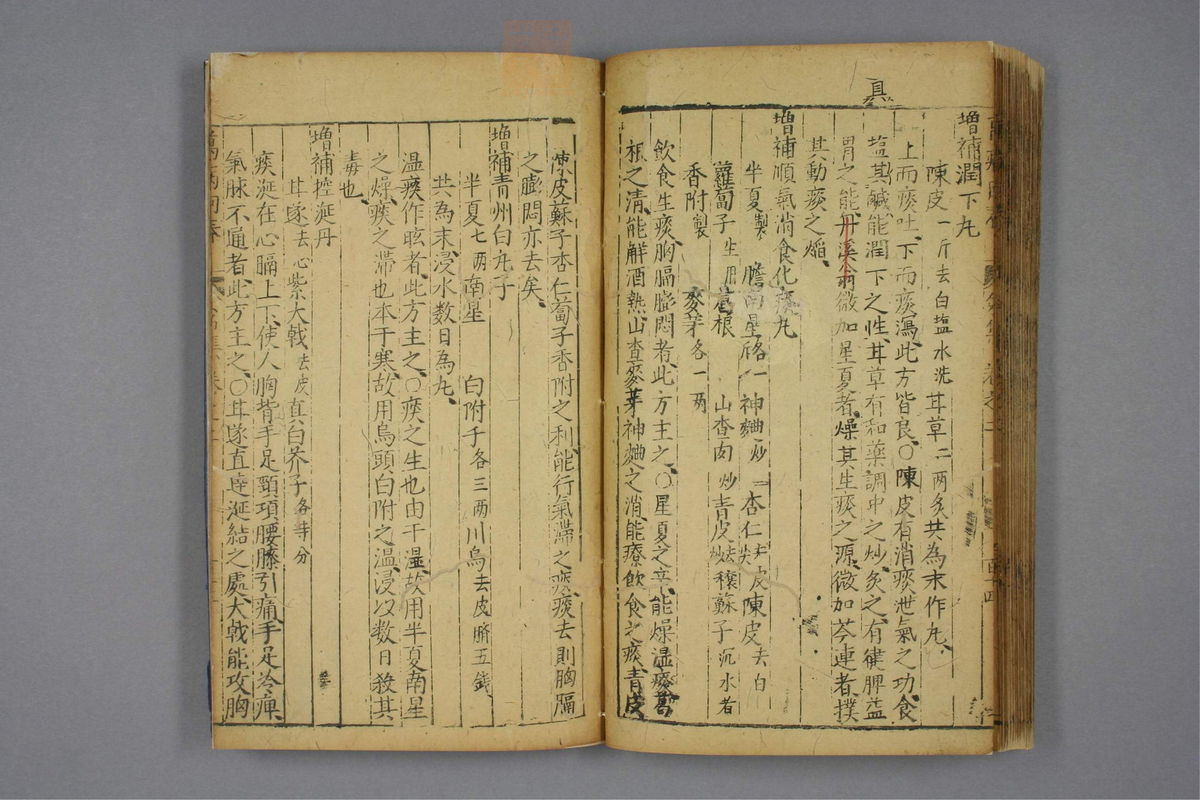 真
增補潤下丸
陳皮一斤去白塩水洗甘草二两炙共為末作丸
上而痰吐下而痰瀉此方皆良〇陳皮有消痰泄氣之功食
塩其鹹能潤下之性甘草有和藥調中之妙炙之有健脾益
胃之能丹溪翁微加星夏者燥其生痰之源微加芩連者撲
其動痰之熖
增補順氣消食化痰丸
半夏製 膽南星各一 神麯炒 杏仁去皮尖 陳皮去白
蘿蔔子生用 葛根 山查肉炒 青皮炒去穰 蘇子沉水者
香附製 麥芽各一两
飲食生痰胸膈膨悶者此方主之〇星夏之辛能燥湿痰葛
根之清能解酒熱山查麥芽神麯之消能療飲食之痰青皮
陳皮蘇子杏仁蔔子香附之利能行氣滯之痰痰去則胸膈
之膨悶亦去矣
增補青州白丸子
半夏七两南星 白附子各三两川烏去皮臍五錢
共為末浸水数日為丸
温痰作眩者此方主之〇痰之生也由于湿故用半夏南星
之燥痰之滞也本于寒故用烏頭白附之温浸以数日殺其
毒也
增補控涎丹
甘遂去心紫大戟去皮真白芥子各等分
痰涎在心膈上下使人胸背手足頸項腰膝引痛手足冷痺
氣脉不通者此方主之〇甘遂直達涎結之處大戟能攻胸